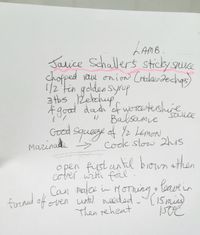 LAMB.
Janice Schaller's sticky sauce
chopped raw onion
1/2 tin golden syrup
3 tbs Ketchup
A good dash of worcestershire sauce
" " Balsamic
Good Squeeze of 1/2 Lemon
→ Cook slow 2 hrs
open first until brown + then
cover with foil.
Can make in Morning + leave in
of oven until needed. - (15 mins
Then reheat 150°C